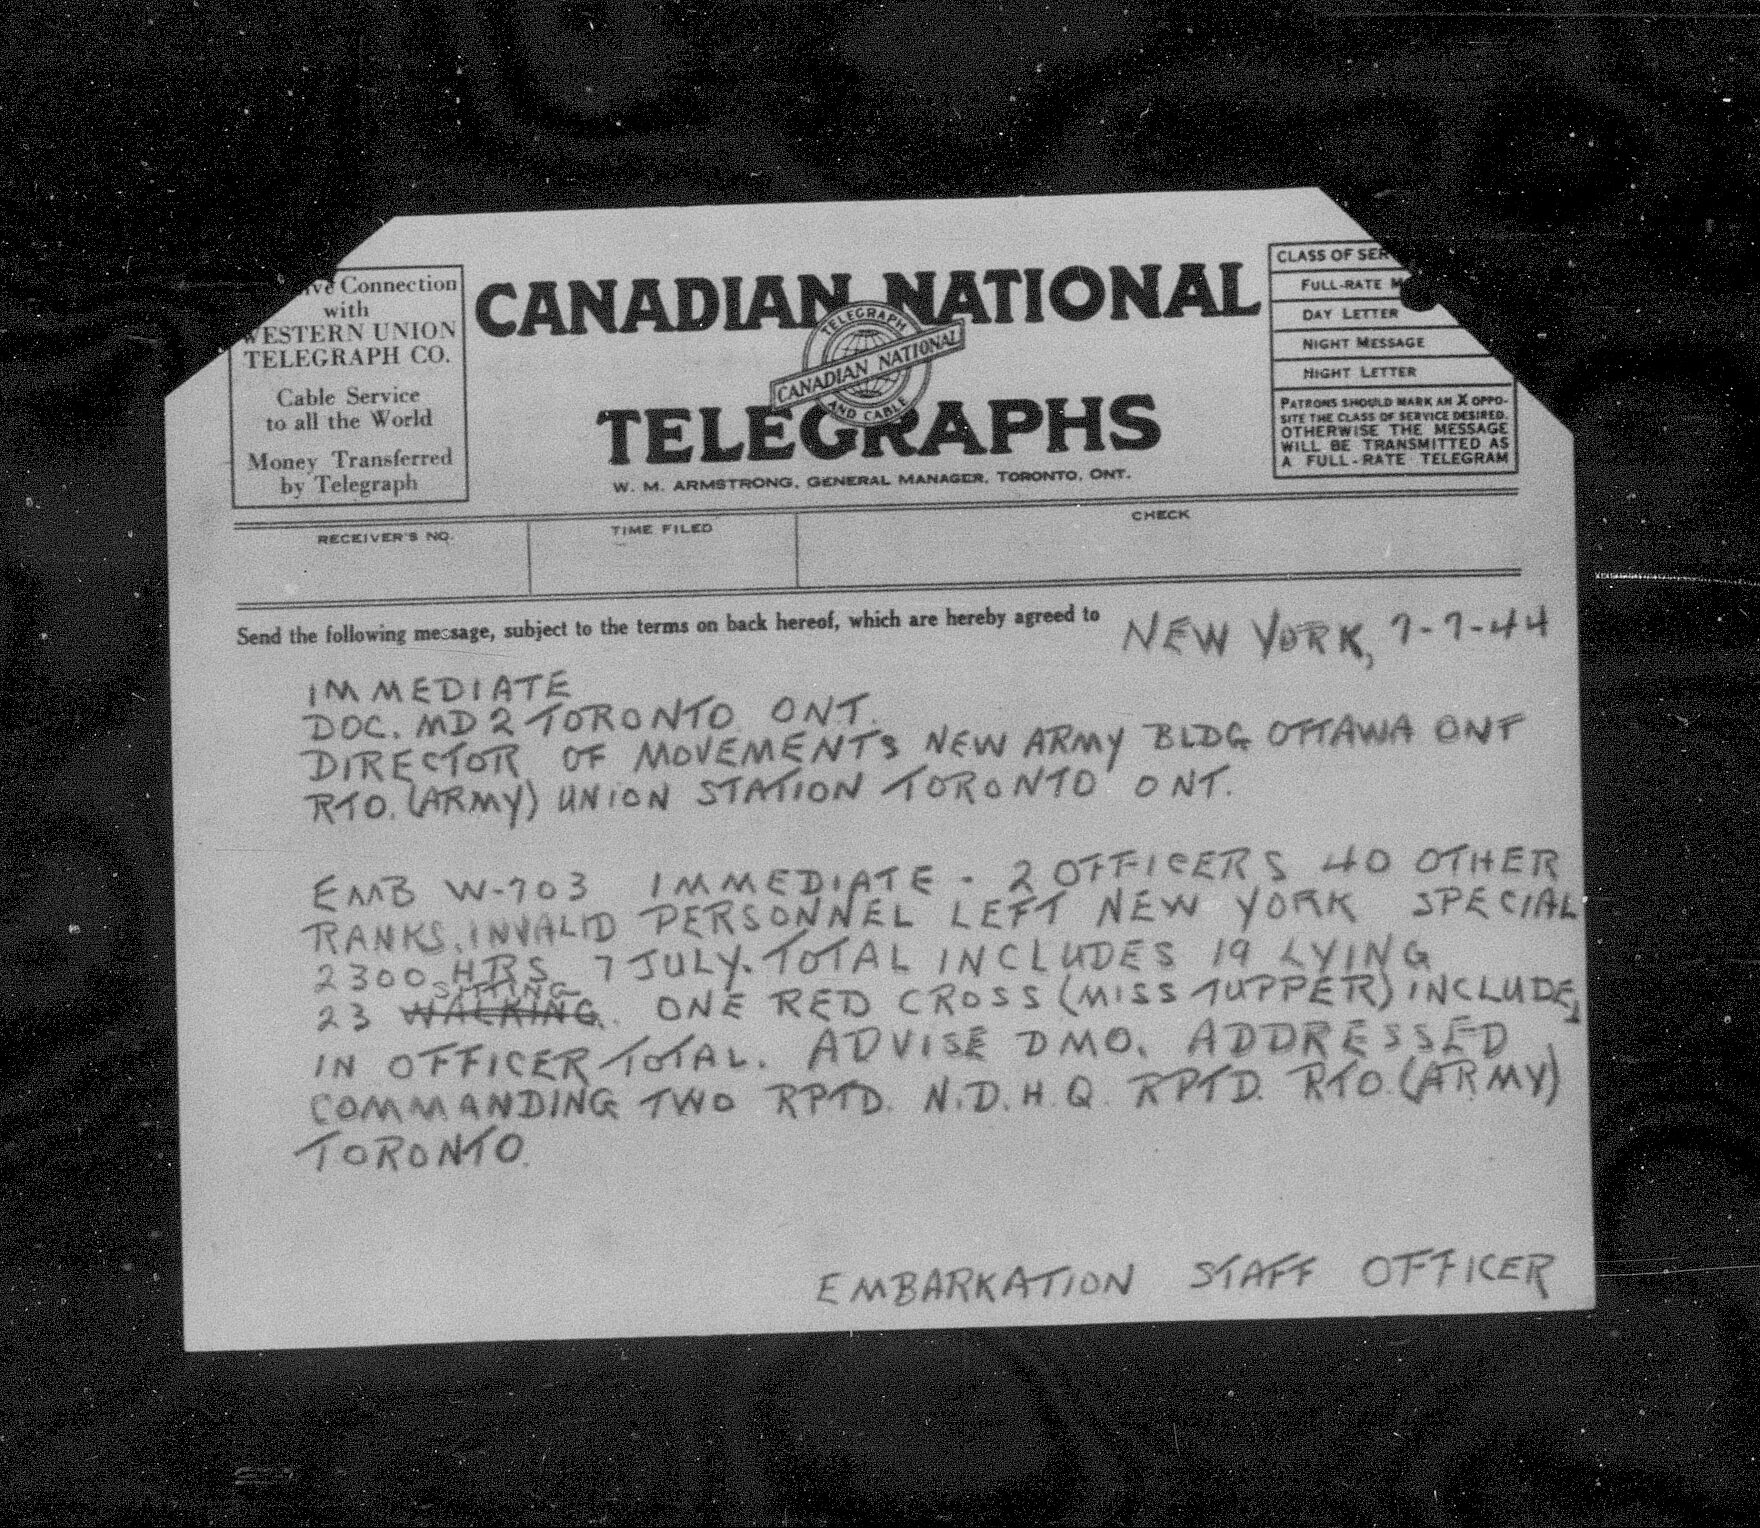 ive Connection
with
WESTERN UNION
TELEGRAPH CO.
Cable Service
to all the World
Money Transferred
by Telegraph
CANADIAN NATIONAL
TELEGRAPH
CANADIAN NATIONAL
AND CABLE
TELEGRAPHS
W. M. ARMSTRONG, GENERAL MANAGER, TORONTO, ONT.
CLASS OF SER
FULL-RATE M
DAY LETTER
NIGHT MESSAGE
NIGHT LETTER
PATRONS SHOULD MARK AN X OPPO-
SITE THE CLASS OF SERVICE DESIRED.
OTHERWISE THE MESSAGE
WILL BE TRANSMITTED AS
A FULL-RATE TELEGRAM
RECEIVER'S NO.
TIME FILED
CHECK
Send the following message, subject to the terms on back hereof, which are hereby agreed to
NEW YORK, 7-7-44
IMMEDIATE
DOC. MD 2 TORONTO ONT.
DIRECTOR OF MOVEMENTS NEW ARMY BLDG OTTAWA ONT
RTO. (ARMY) UNION STATION TORONTO ONT.
EMB W-703 IMMEDIATE - 2 OFFICERS 40 OTHER
RANKS. INVALID PERSONNEL LEFT NEW YORK SPECIAL
2300 HRS 7 JULY. TOTAL INCLUDES 19 LYING
SITTING
23 WALKING. ONE RED CROSS (MISS TUPPER) INCLUDED
IN OFFICER TOTAL. ADVISE DMO. ADDRESSED
COMMANDING TWO RPTD. N.D.H.Q. RPTD. RTO. (ARMY)
TORONTO.
EMBARKATION STAFF OFFICER